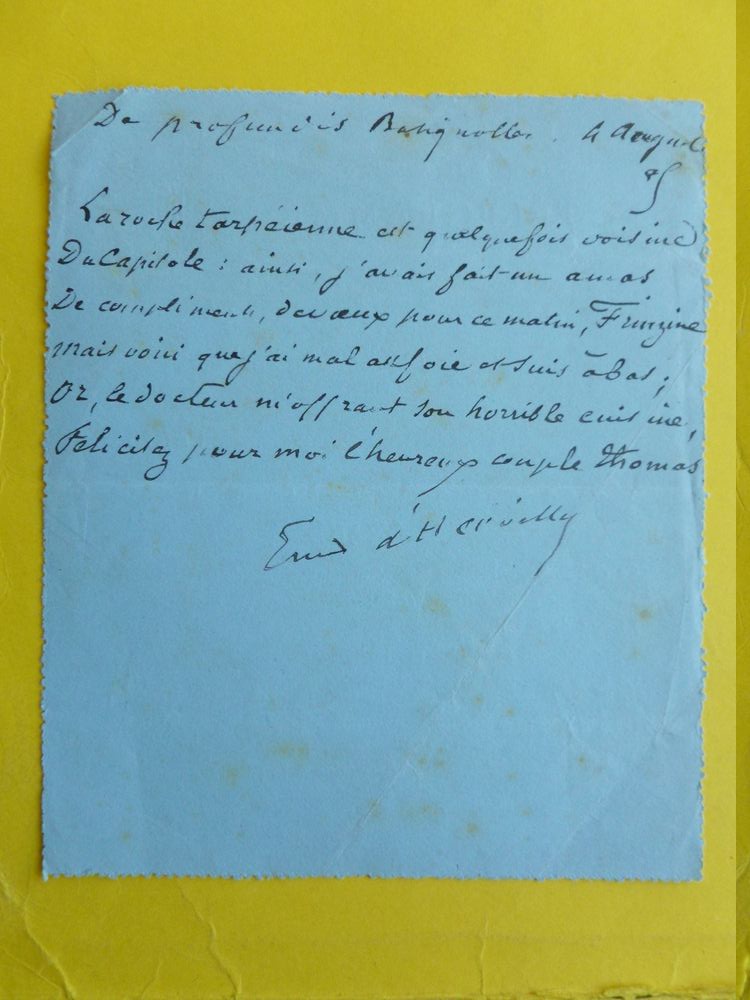 De profundis Batignolles. 4 August
95
La roche tarpéienne est quelquefois voisine
Du Capitole : ainsi, j'avais fait un amas
De compliments, de vœux pour ce matin, Frinzine
Mais voici que j'ai mal au foie et suis à bas ;
Or, le docteur m'offrant son horrible cuisine,
Felicitez pour moi l'heureux couple Thomas
Ernest d'Hervilly